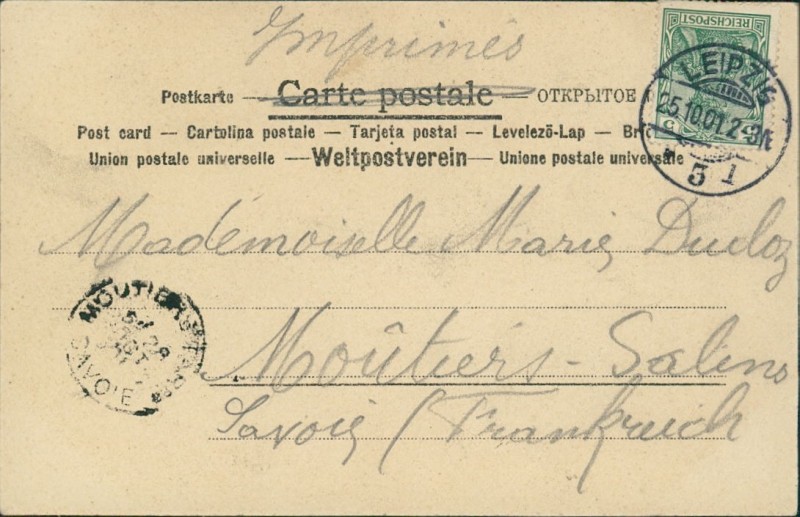 Imprimés
REICHSPOST
Postkarte — Carte postale — ОТКРЫТОЕ
LEIPZIG
25.10.01.2-3N.
5 1
Post card — Cartolina postale — Tarjeta postal — Levelező-Lap — Br
Union postale universelle — Weltpostverein — Unione postale universale
Mademoiselle Marie Ducloz
MOUTIERS-TAR
28
OCT
SAVOIE
Moûtiers-Salins
Savoie (Frankreich